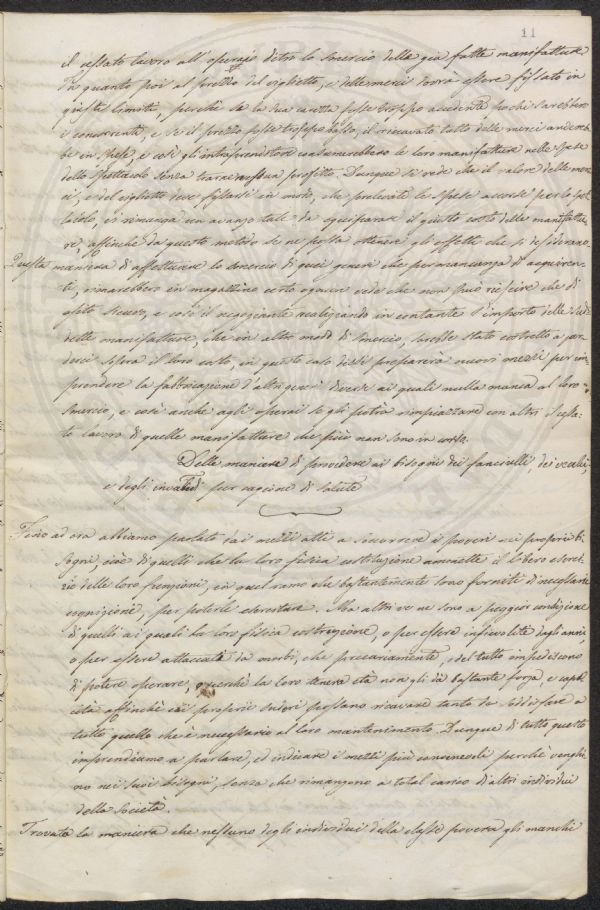 11
il cessato lavoro all'operajo dietro lo smercio della già fatta manifattura
In quanto poi al prezzo del viglietto, e delle merci dovrà essere fissato in
giusti limiti, perchè se la sua carezza fosse troppo accedente pochi sarebbero
i concorrenti, e se il prezzo fosse troppo basso, il ricavato tutto delle merci andereb
be in spese, e così gl'intraprenditore consumerebbero le loro manifatture nelle spese
dello spettacolo senza trarne nessun profitto. Dunque si vede che il valore delle mer
ci, e del viglietto deve fissarsi in modo, che prelevate le spese accorse per lo spet
tacolo, vi rimanga un avanzo tale da equiparare il giusto costo delle manifattu
re, affinchè da questo metodo se ne possa ottenere gli effetti che si desiderano.
Questa maniera di affettuare lo smercio di quei generi che per mancanza di acquiren
ti, rimarebbero in magazzino certo ognuno vede che non può riescire che di
esito sicuro, e così il negoziante realizzando in contante l'importo delle sud
dette manifatture, che in altro modo di smercio, sarebbe stato costretto a per
derci sopra il loro costo, in questo caso dissi preparerà nuovi mezzi per im
prendere la fabbricazione d'altri generi diversi ai quali nulla manca al loro
smercio, e così anche agli operai se gli potrà rimpiazzare con altri il cessa
to lavoro di quelle manifatture che più non sono in corso.
Delle maniere di provedere ai bisogni dei fanciulli, dei vecchi,
e degli invalidi per cagione di salute
Fino ad ora abbiamo parlato dei mezzi atti a soccorrere i poveri nei proprii bi
sogni, cioè di quelli che la loro fisica costituzione ammette il libero eserci
zio delle loro funzioni, in quel ramo che bastantemente sono forniti di necessarie
cognizioni, per poterle esercitare. Ma altri ve ne sono a peggior condizione
di quelli ai quali la loro fisica costruzione, o per essere infievolita dagli anni
o per essere attaccata da morbi, che precariamente, o del tutto impediscono
di potere operare, o perchè la loro tenera età non gli dà bastante forza, e capa
cità affinchè coi proprii sudori possano ricavare tanto da sodisfare a
tutto quello che è necessario al loro mantenimento. Dunque di tutto questo
imprendiamo a parlare, ed indicare i mezzi più convenevoli perchè venghi
no nei suoi bisogni, senza che rimangono a total carico d'altri individui
della Società.
Trovata la maniera che nessuno degli individui della classe povera gli manchi